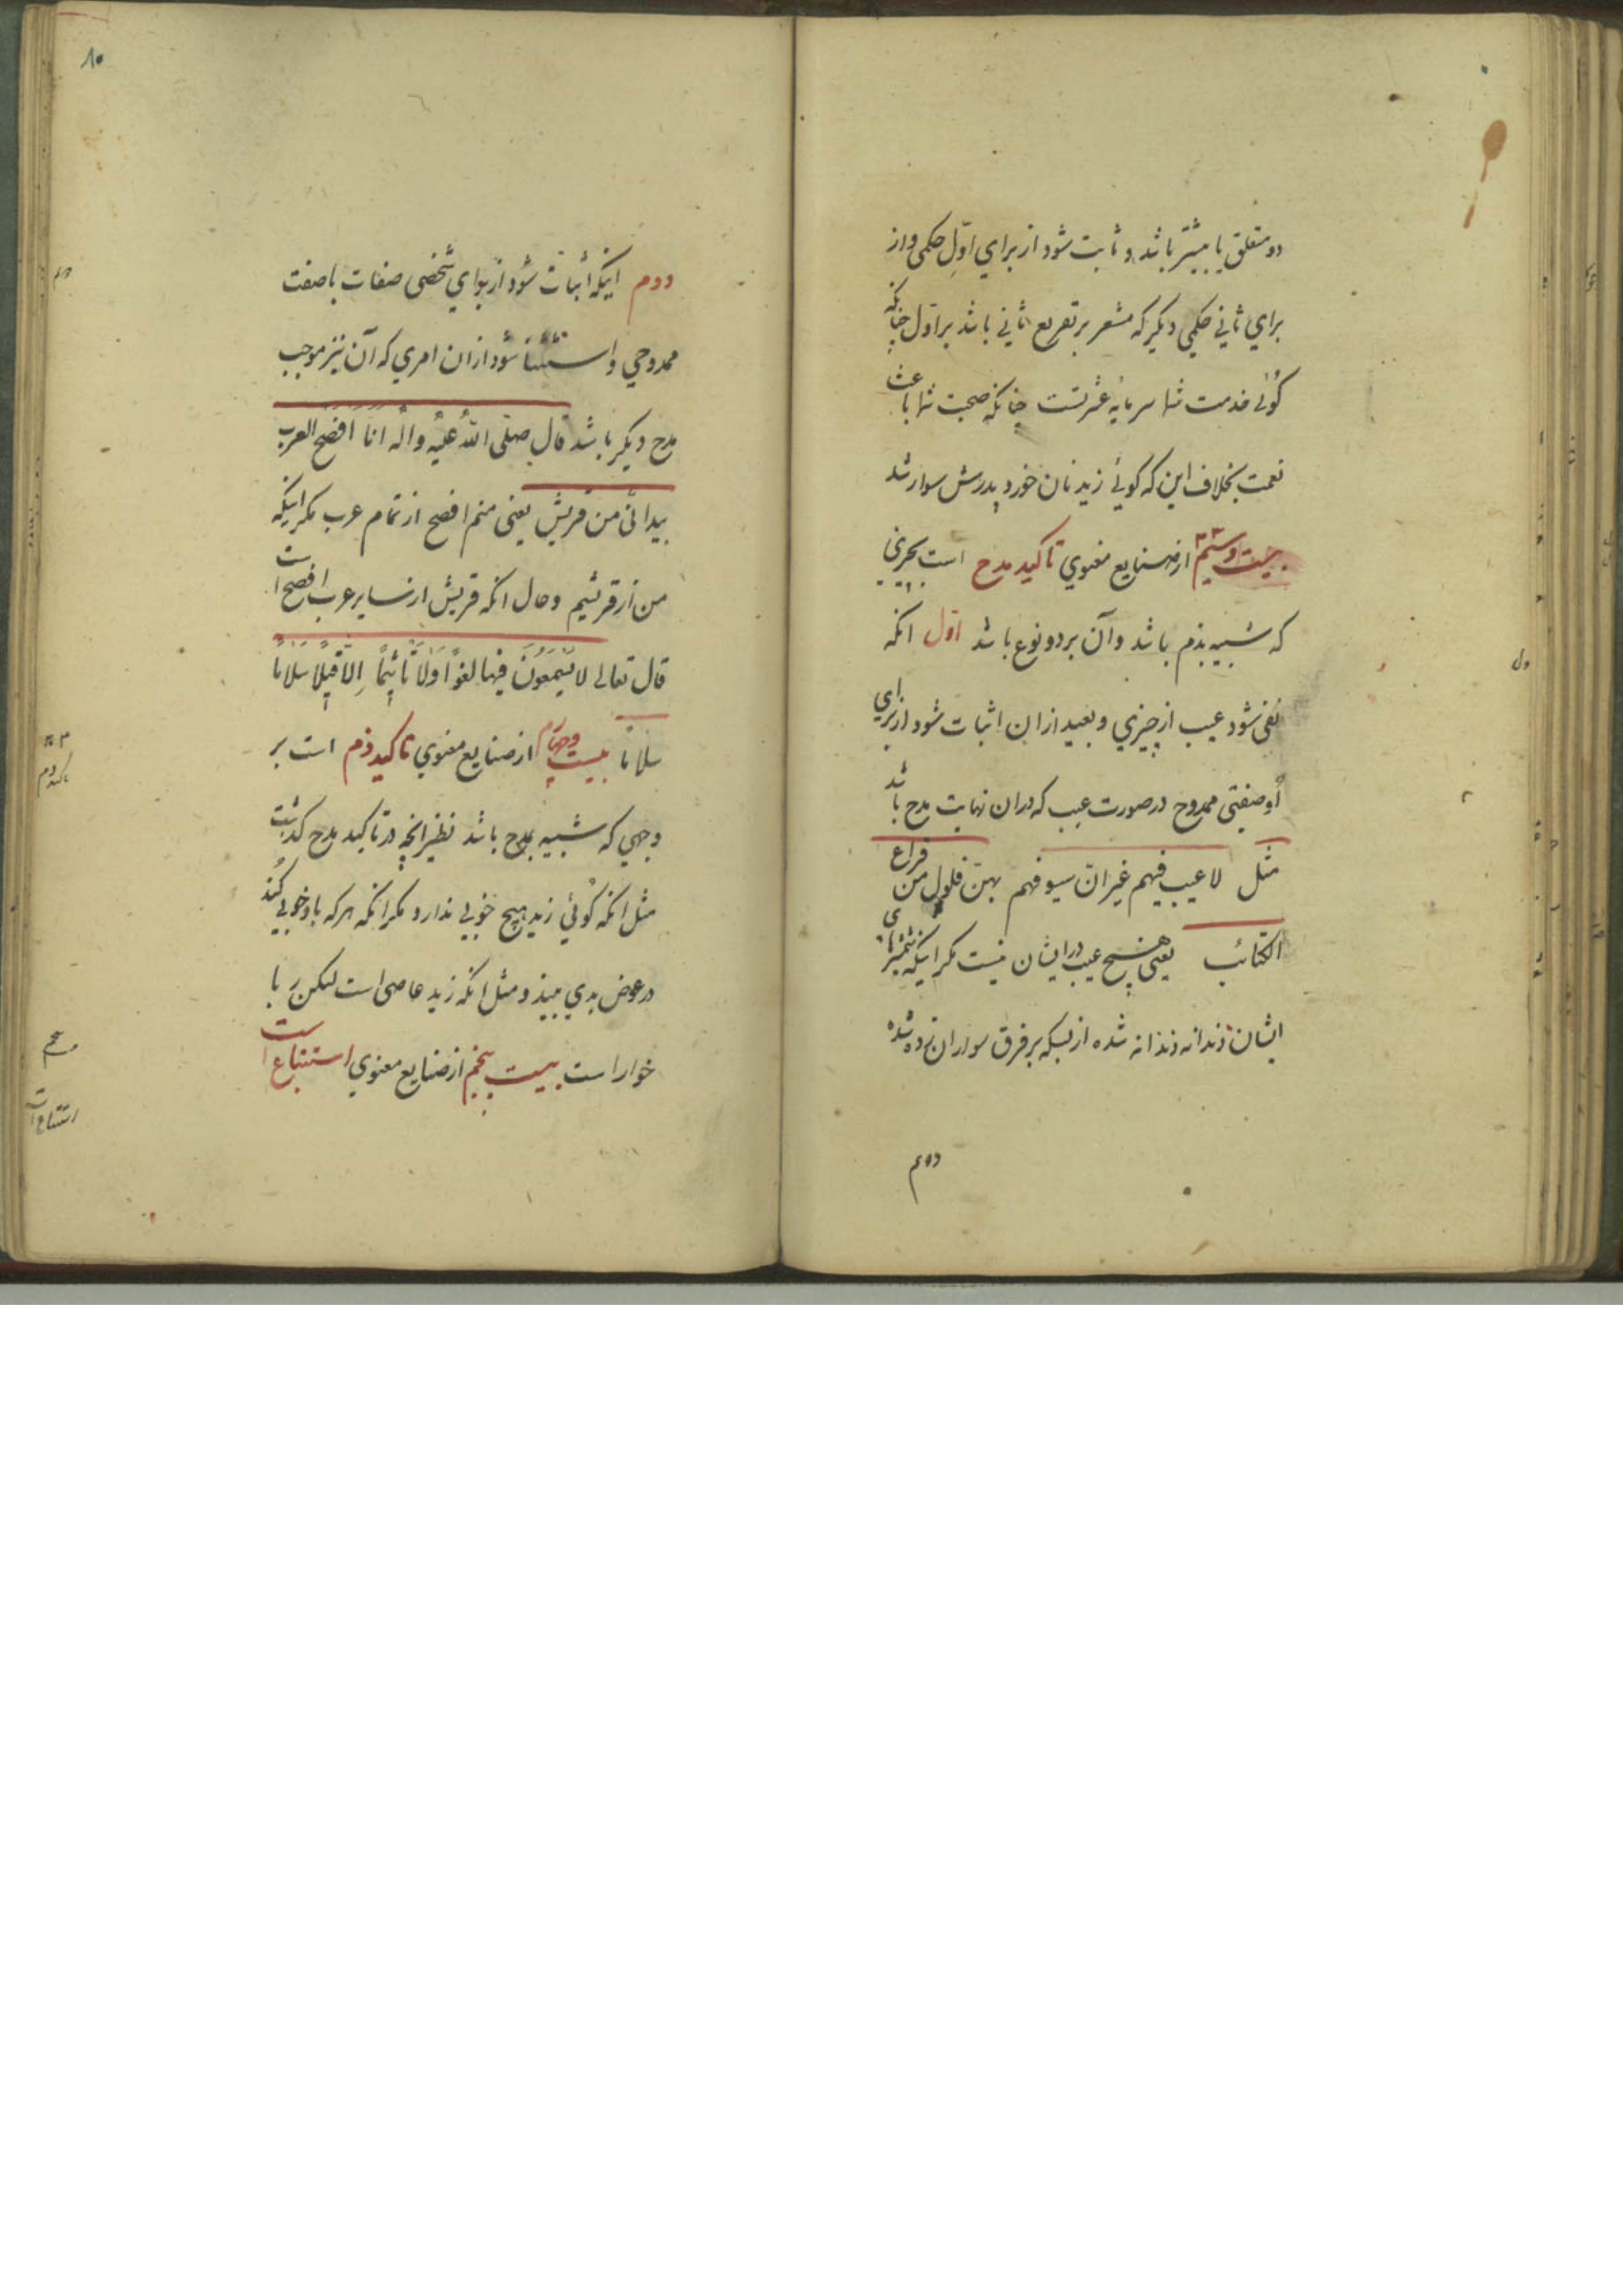 دو متعلق یا بیشتر باشد و ثابت شود از برای اوّل حکمی و از
برای ثانی حکمی دیگر که مشعر بر تفریع ثانی باشد بر اوّل چنانکه
گوئی خدمت شما سرمایه عشرتست چنانکه صحبت شما باعث
نعمت بخلاف این که گوئی زید نان خورد و پدرش سوار شد
بیست و سیّم از صنایع معنوی تاکید مدح است بچیزی
که شبیه بذم باشد و آن بر دو نوع باشد اوّل انکه
نفی شود عیب از چیزی و بعید ازان اثبات شود از برای
او صفتی ممدوح در صورت عیب که دران نهایت مدح باشد
مثل لا عیب فیهم غیر انّ سیوفهم بهنّ فلول من قراع
الکتائب یعنی هیچ عیب در ایشان نیست مکر اینکه شمشیرهای
ایشان دندانه دندانه شده از بسکه بر فرق سواران زده شده
دوم
اول
۸۰
دوم اینکه اثبات شود از برای شخصی صفات یا صفت
ممدوحی و استثنا شود ازان امری که آن نیز موجب
مدح دیکر باشد قال صلّی اللّه علیه و اله انا افصح العرب
بید انّی من قریش یعنی منم افصح از تمام عرب مکر اینکه
من از قریشم و حال انکه قریش از سایر عرب افصح است
قال تعالی لا یَسْمَعُونَ فیها لغوًا وَلا تَأثیمًا اِلّا قیلًا سَلامًا
سلامًا بیست و چهارم از صنایع معنوی تاکید ذم است بر
وجهی که شبیه بمدح باشد نظیر انچه در تاکید مدح کذشت
مثل انکه گوئی زید هیچ خوبی ندارد مکر انکه هر که با او خوبی کند
در عوض بدی بیند و مثل انکه زید عاصی است لیکن ربا
خوار است بیست پنجم از صنایع معنوی استتباع است
دوم